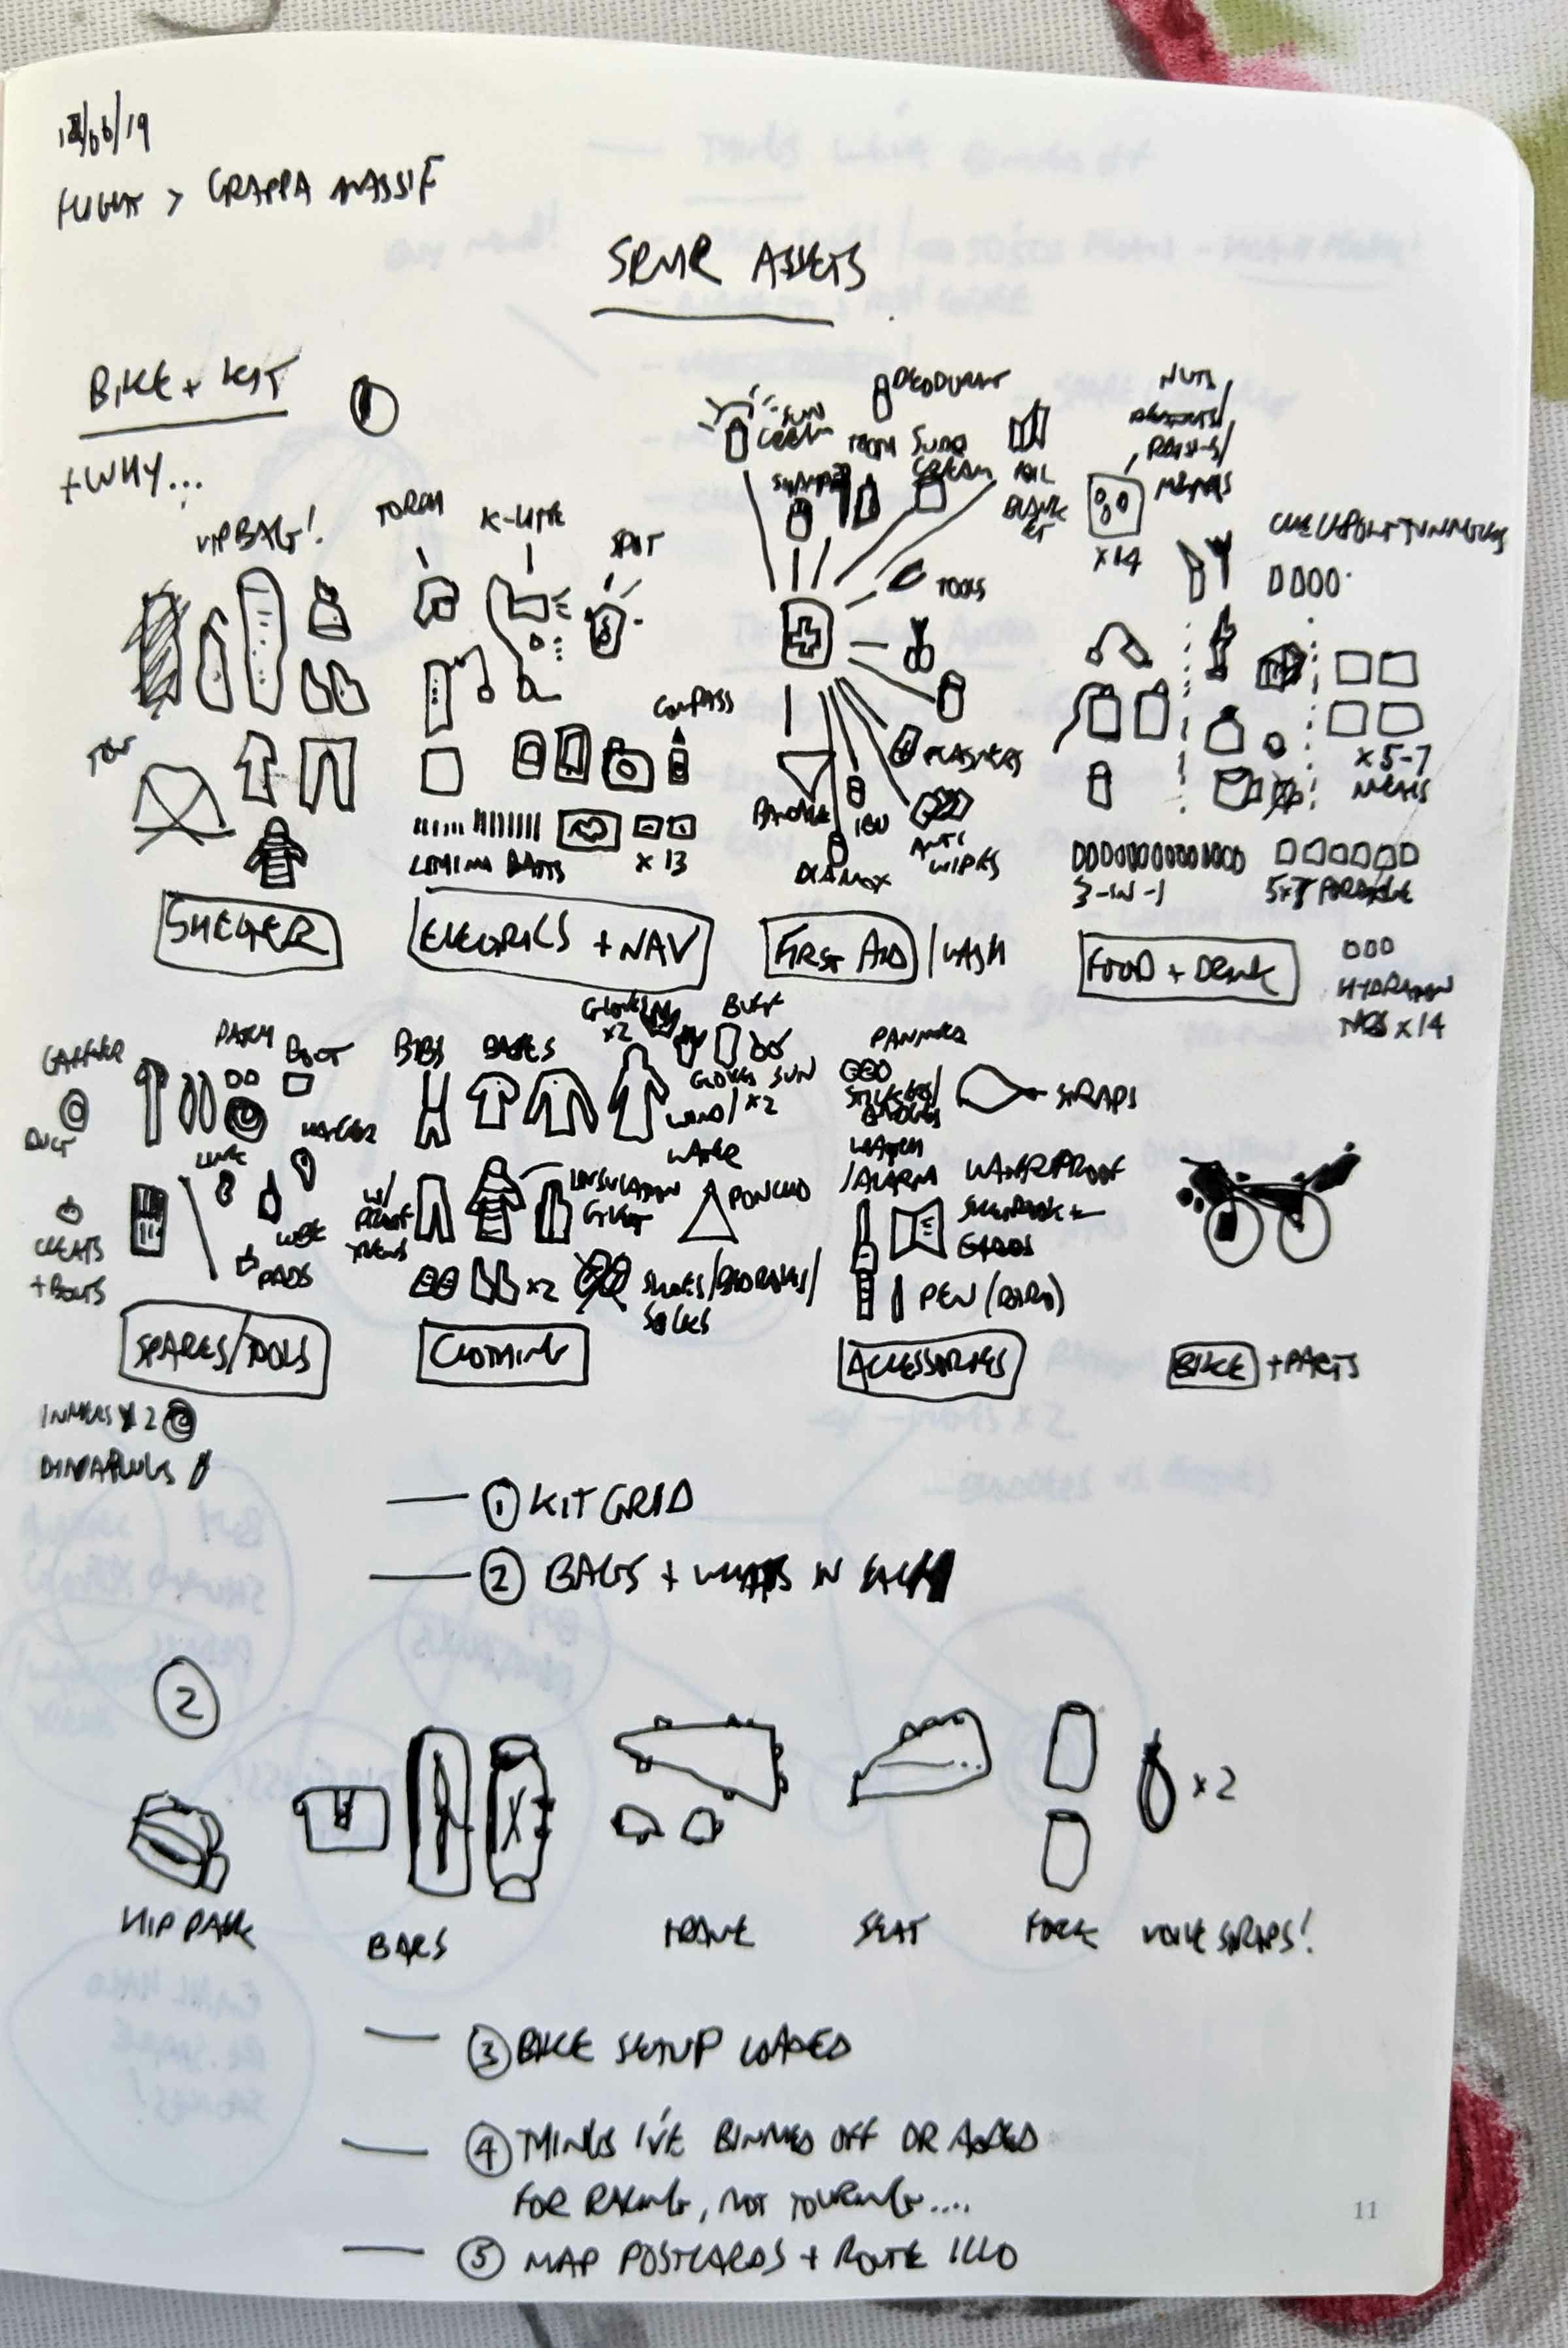 /06/19
FLIGHT > GRAPPA MASSIF
SRMR ASSETS
BIKE + KIT
1
+ WHY...
VIP BAG!
TORCH
K-LITE
SPOT
SUN CREAM
DEODORANT
TOOTH
SUDO CREAM
FOIL BLANKET
NUTS/
RAISINS/
x14
TOOLS
COMPASS
LITHIUM BATTS
x 13
BANDAGE
IBU
DIAMOX
PLASTERS
ANTI WIPES
x 5-7
MEALS
3-IN-1
5x PORRIDGE
SHELTER
ELECTRICS + NAV
FIRST AID / WASH
FOOD + DRINK
HYDRATION
x14
GAFFER
DUCT
PATCH
BOOT
HANGER
LINK
LUBE
PADS
CLEATS
+ BOLTS
SPARES/TOOLS
INNERS x2
DYNAPLUGS
BIBS
BASES
GLOVES
x2
BUFF
GLOVES
SUN
x2
WIND/
WATER
W/PROOF
INSULATION
GILET
PONCHO
x2
SHOES/
SOCKS
CLOTHING
PANNIERS
STICKERS/
BADGES
STRAPS
WATCH
/ALARM
WATERPROOF
SKETCHBOOK +
CARDS
PEN (BIRO)
ACCESSORIES
BIKE + PARTS
— 1 KIT GRID
— 2 BAGS + WHATS IN EACH
2
x 2
HIP PACK
BARS
FRAME
SEAT
FORK
VOILE STRAPS!
— 3 BIKE SETUP LOADED
— 4 THINGS I'VE BINNED OFF OR ADDED
FOR RACING, NOT TOURING....
— 5 MAP POSTCARDS + ROUTE ILLO
11